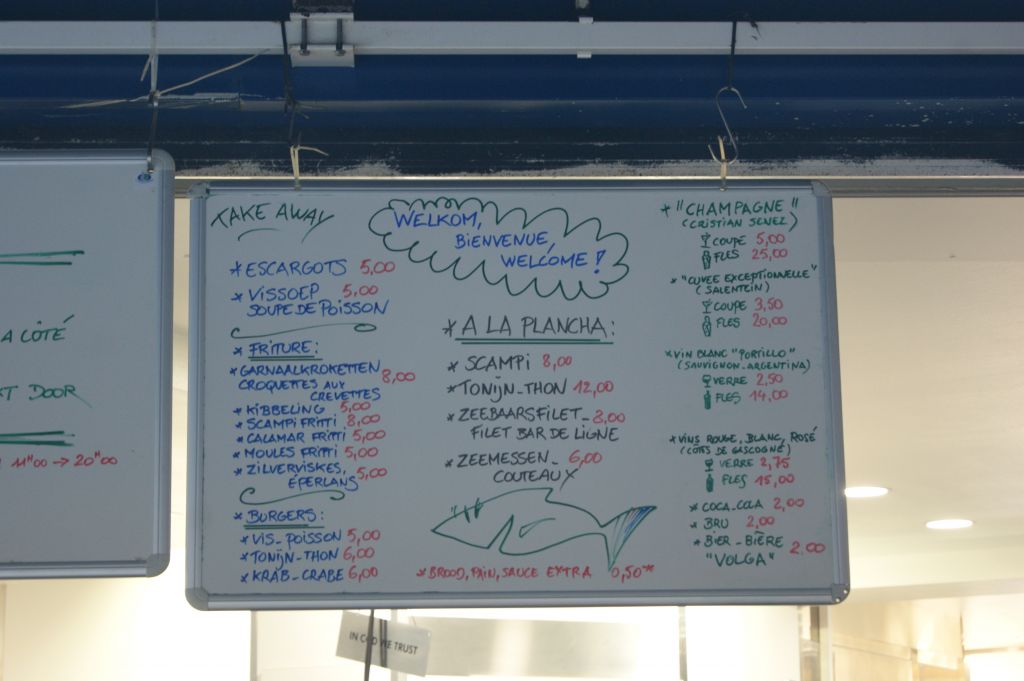 A CÔTÉ
DOOR
11"00 → 20"00
TAKE AWAY
* ESCARGOTS 5,00
* VISSOEP 5,00
SOUPE DE POISSON
* FRITURE:
* GARNAALKROKETTEN 8,00
CROQUETTES AUX
CREVETTES
* KIBBELING 5,00
* SCAMPI FRITTI 8,00
* CALAMAR FRITTI 5,00
* MOULES FRITTI 5,00
* ZILVERVISKES, 5,00
ÉPERLANS
* BURGERS:
* VIS_POISSON 5,00
* TONIJN_THON 6,00
* KRAB_CRABE 6,00
WELKOM,
BIENVENUE,
WELCOME!
* A LA PLANCHA:
* SCAMPI 8,00
* TONIJN_THON 12,00
* ZEEBAARSFILET_ 8,00
FILET BAR DE LIGNE
* ZEEMESSEN_ 6,00
COUTEAUX
* BROOD, PAIN, SAUCE EXTRA 0,50
* "CHAMPAGNE"
(CRISTIAN SENEZ)
COUPE 5,00
FLES 25,00
* "CUVEE EXCEPTIONNELLE"
(SALENTEIN)
COUPE 3,50
FLES 20,00
* VIN BLANC "PORTILLO"
(SAUVIGNON-ARGENTINA)
VERRE 2,50
FLES 14,00
* VINS ROUGE, BLANC, ROSÉ
(CÔTES DE GASCOGNE)
VERRE 2,75
FLES 15,00
* COCA-COLA 2,00
* BRU 2,00
* BIER-BIÈRE 2,00
"VOLGA"
IN COD WE TRUST